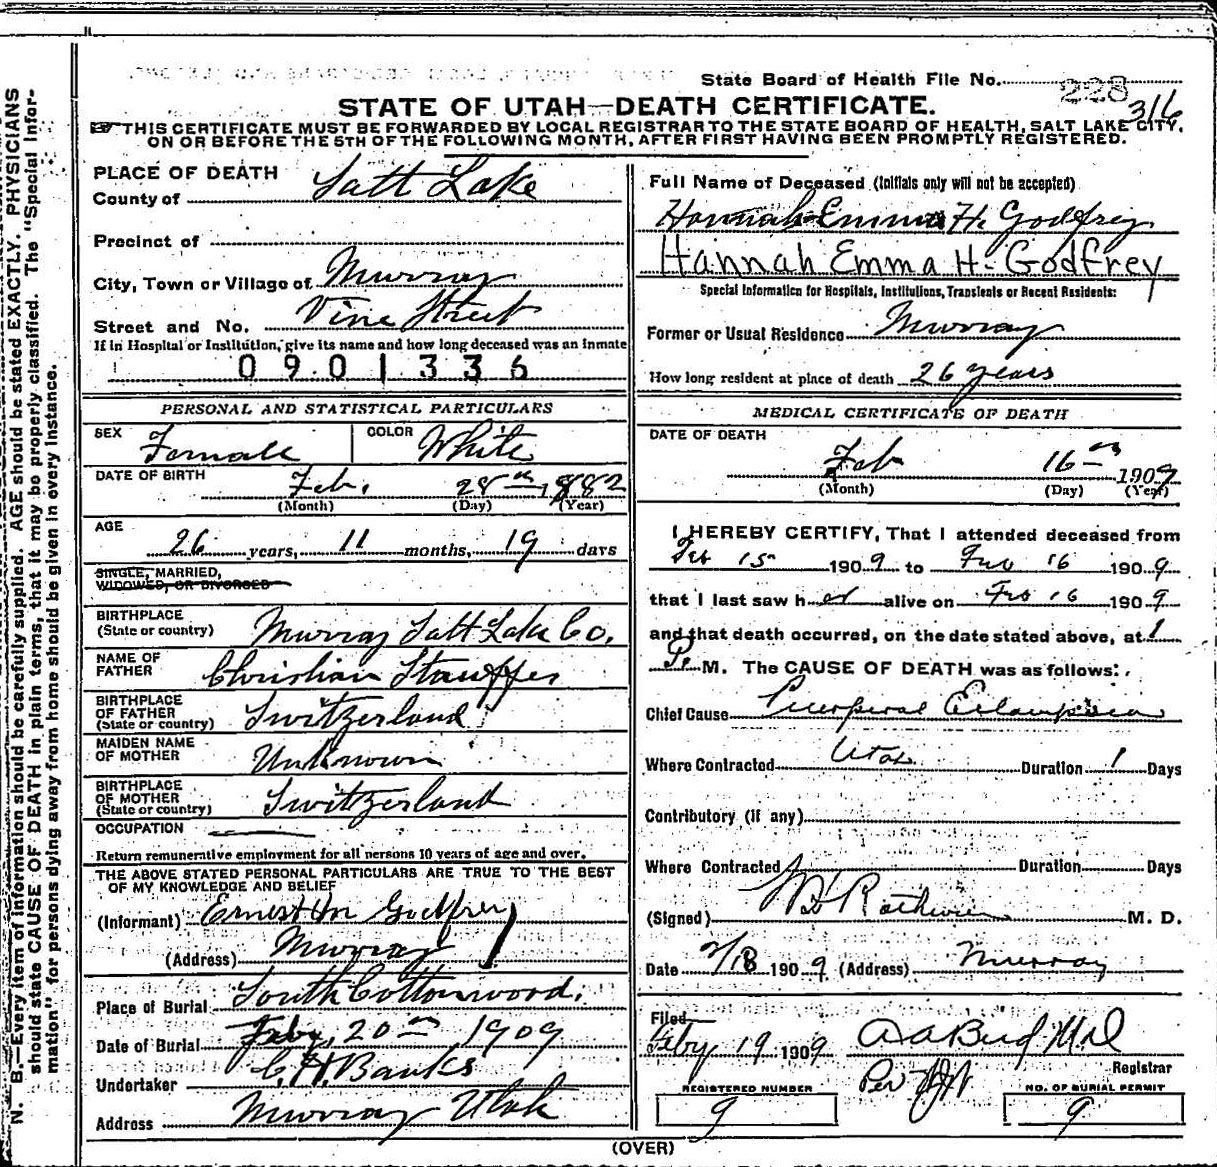 State Board of Health File No. 228
316
STATE OF UTAH—DEATH CERTIFICATE.
THIS CERTIFICATE MUST BE FORWARDED BY LOCAL REGISTRAR TO THE STATE BOARD OF HEALTH, SALT LAKE CITY,
ON OR BEFORE THE 5TH OF THE FOLLOWING MONTH, AFTER FIRST HAVING BEEN PROMPTLY REGISTERED.
N. B.—Every item of information should be carefully supplied. AGE should be stated EXACTLY. PHYSICIANS
should state CAUSE OF DEATH in plain terms, that it may be properly classified. The "Special Infor-
mation" for persons dying away from home should be given in every instance.
PLACE OF DEATH
County of Salt Lake
Precinct of
City, Town or Village of Murray
Street and No. Vine Street
If in Hospital or Institution, give its name and how long deceased was an inmate
0901336
PERSONAL AND STATISTICAL PARTICULARS
SEX Female COLOR White
DATE OF BIRTH Feb. 28th, 1882
(Month) (Day) (Year)
AGE
26 years, 11 months, 19 days
SINGLE, MARRIED,
WIDOWED, OR DIVORCED
BIRTHPLACE
(State or country) Murray Salt Lake Co.
NAME OF
FATHER Christian Stauffer
BIRTHPLACE
OF FATHER
(State or country) Switzerland
MAIDEN NAME
OF MOTHER Unknown
BIRTHPLACE
OF MOTHER
(State or country) Switzerland
OCCUPATION
Return remunerative employment for all persons 10 years of age and over.
THE ABOVE STATED PERSONAL PARTICULARS ARE TRUE TO THE BEST
OF MY KNOWLEDGE AND BELIEF
(Informant) Ernest M Godfrey
(Address) Murray
Place of Burial South Cottonwood.
Date of Burial Feby, 20th 1909
Undertaker C. H. Banks
Address Murray Utah
Full Name of Deceased (Initials only will not be accepted)
Hannah Emma H. Godfrey
Hannah Emma H. Godfrey
Special Information for Hospitals, Institutions, Transients or Recent Residents:
Former or Usual Residence Murray
How long resident at place of death 26 years
MEDICAL CERTIFICATE OF DEATH
DATE OF DEATH
Feb 16th 1909
(Month) (Day) (Year)
I HEREBY CERTIFY, That I attended deceased from
Feb 15 1909 to Feb 16 1909
that I last saw her alive on Feb 16 1909
and that death occurred, on the date stated above, at 1
P. M. The CAUSE OF DEATH was as follows:
Chief Cause Puerperal Eclampsia
Where Contracted Utah Duration 1 Days
Contributory (if any)
Where Contracted Duration Days
(Signed) M. D.
Date 2/18 1909 (Address) Murray
Filed
Feby 19 1909
Registrar
Per
REGISTERED NUMBER
9
NO. OF BURIAL PERMIT
9
(OVER)